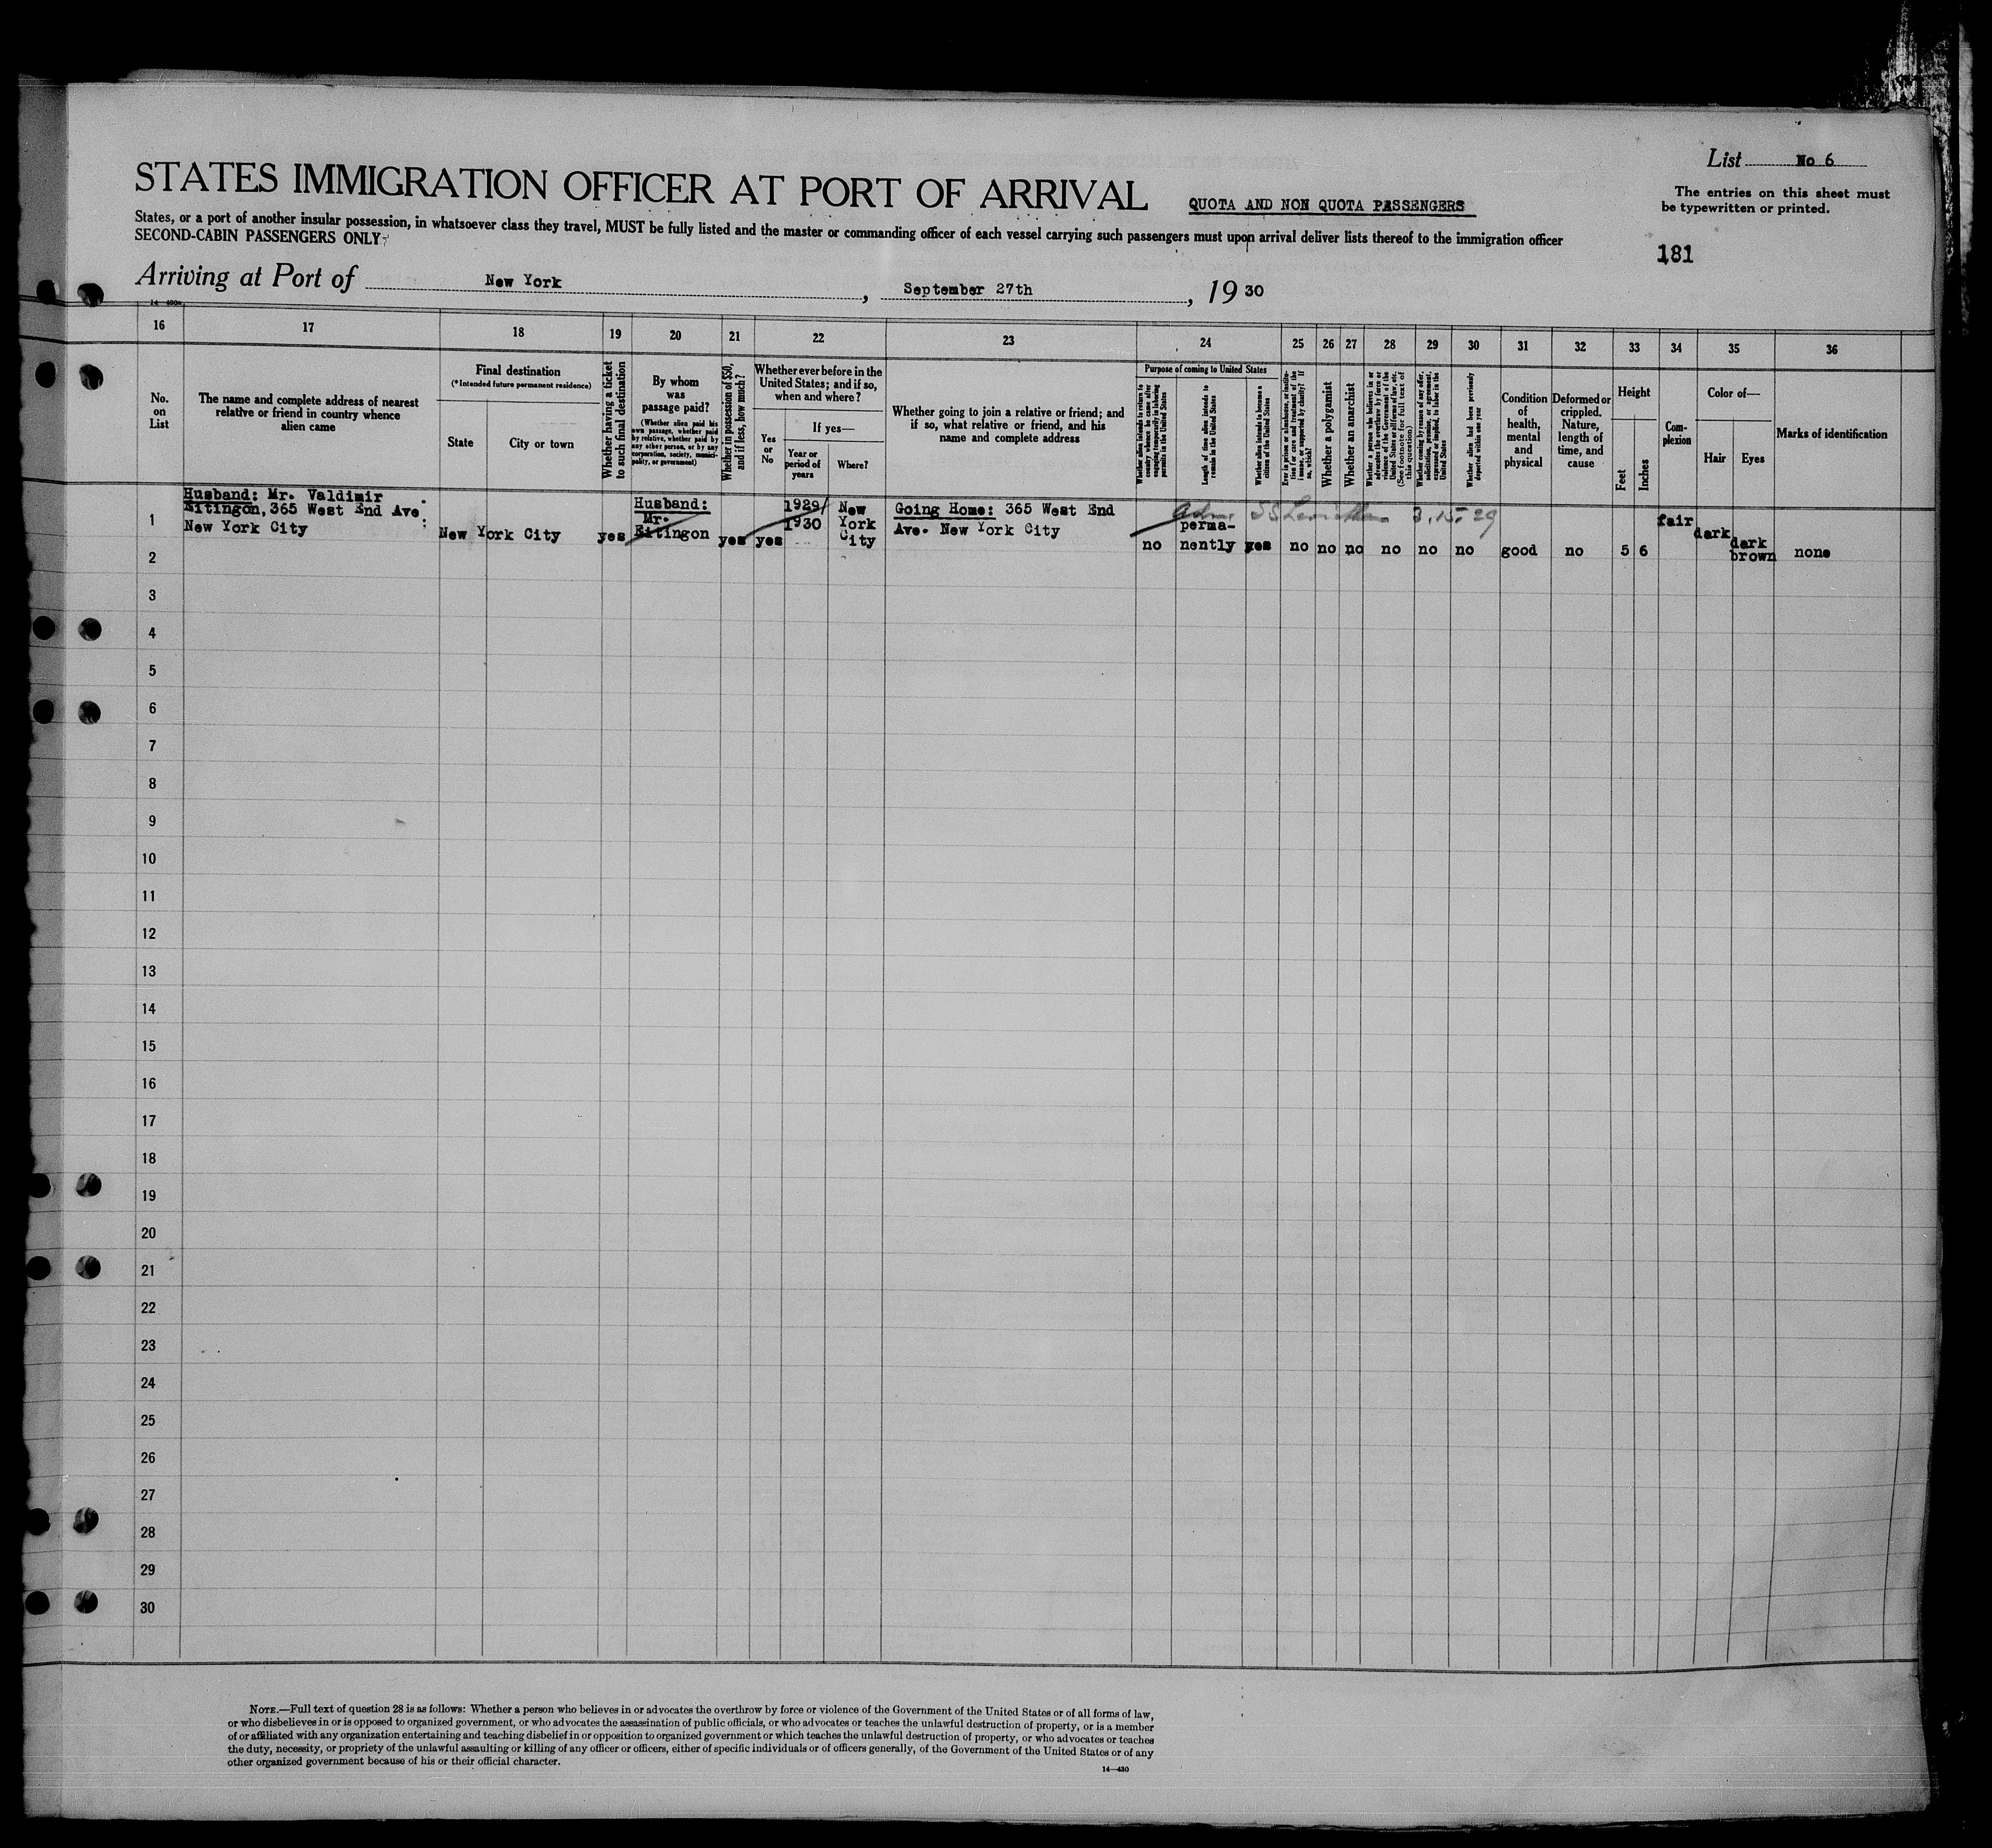 List No 6
STATES IMMIGRATION OFFICER AT PORT OF ARRIVAL
QUOTA AND NON QUOTA PASSENGERS
The entries on this sheet must
be typewritten or printed.
States, or a port of another insular possession, in whatsoever class they travel, MUST be fully listed and the master or commanding officer of each vessel carrying such passengers must upon arrival deliver lists thereof to the immigration officer
SECOND-CABIN PASSENGERS ONLY
181
Arriving at Port of New York, September 27th, 19 30
16 17 18 19 20 21 22 23 24 25 26 27 28 29 30 31 32 33 34 35 36
No.
on
List
The name and complete address of nearest
relative or friend in country whence
alien came
Final destination
(*Intended future permanent residence)
State
City or town
Whether having a ticket
to such final destination
By whom
was
passage paid?
(Whether alien paid his
own passage, whether paid
by relative, whether paid by
any other person, or by any
corporation, society, munici-
pality, or government)
Whether in possession of $50,
and if less, how much?
Whether ever before in the
United States; and if so,
when and where?
Yes
or
No
If yes—
Year or
period of
years
Where?
Whether going to join a relative or friend; and
if so, what relative or friend, and his
name and complete address
Purpose of coming to United States
Whether alien intends to return to
country whence he came after
engaging temporarily in laboring
pursuits in the United States
Length of time alien intends to
remain in the United States
Whether alien intends to become a
citizen of the United States
Ever in prison or almshouse, or institu-
tion for care and treatment of the
insane, or supported by charity? If
so, which?
Whether a polygamist
Whether an anarchist
Whether a person who believes in or
advocates the overthrow by force or
violence of the Government of the
United States or all forms of law, etc.
(See footnote for full text of
this question)
Whether coming by reason of any offer,
solicitation, promise, or agreement,
expressed or implied, to labor in the
United States
Whether alien had been previously
deported within one year
Condition
of
health,
mental
and
physical
Deformed or
crippled.
Nature,
length of
time, and
cause
Height
Feet
Inches
Com-
plexion
Color of—
Hair
Eyes
Marks of identification
1
Husband: Mr. Valdimir
Eitingon, 365 West End Ave
New York City
New York City
yes
Husband:
Mr.
Eitingon
yes
yes
1929/
1930
New
York
City
Going Home: 365 West End
Ave. New York City
Adm. SS Leviathan 3.15.29
no
perma-
nently
yes
no no no no no no good no 5 6 fair dark dark
brown none
2
3
4
5
6
7
8
9
10
11
12
13
14
15
16
17
18
19
20
21
22
23
24
25
26
27
28
29
30
NOTE.—Full text of question 28 is as follows: Whether a person who believes in or advocates the overthrow by force or violence of the Government of the United States or of all forms of law,
or who disbelieves in or is opposed to organized government, or who advocates the assassination of public officials, or who advocates or teaches the unlawful destruction of property, or is a member
of or affiliated with any organization entertaining and teaching disbelief in or opposition to organized government or which teaches the unlawful destruction of property, or who advocates or teaches
the duty, necessity, or propriety of the unlawful assaulting or killing of any officer or officers, either of specific individuals or of officers generally, of the Government of the United States or of any
other organized government because of his or their official character.
14—430